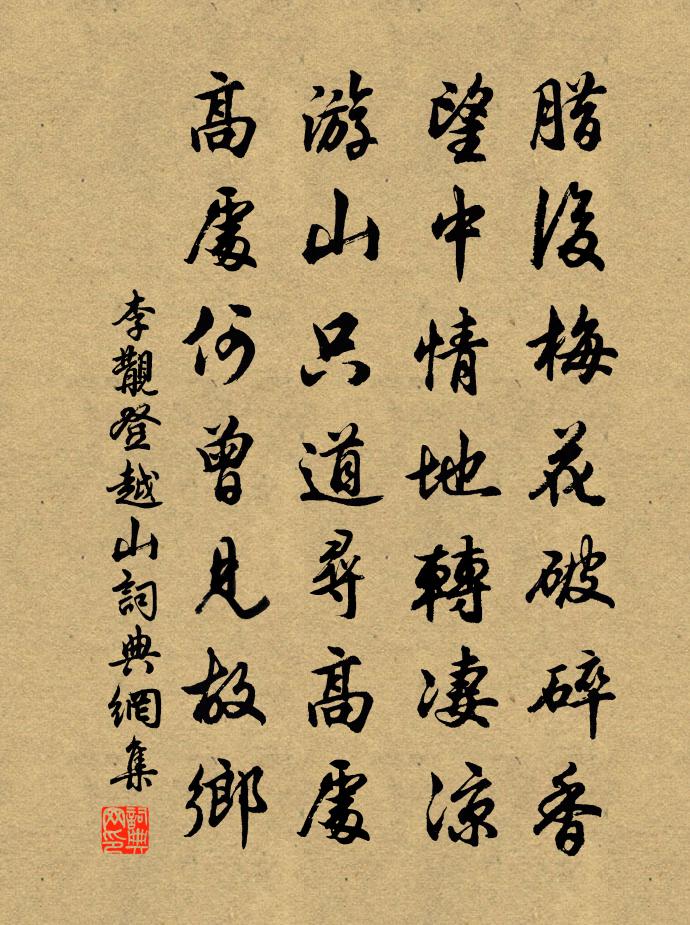 腊後梅花破碎香
望中情地轉凄涼
游山只道尋高處
高處何曾見故鄉
李覯登越山詞典網集
詞典網印